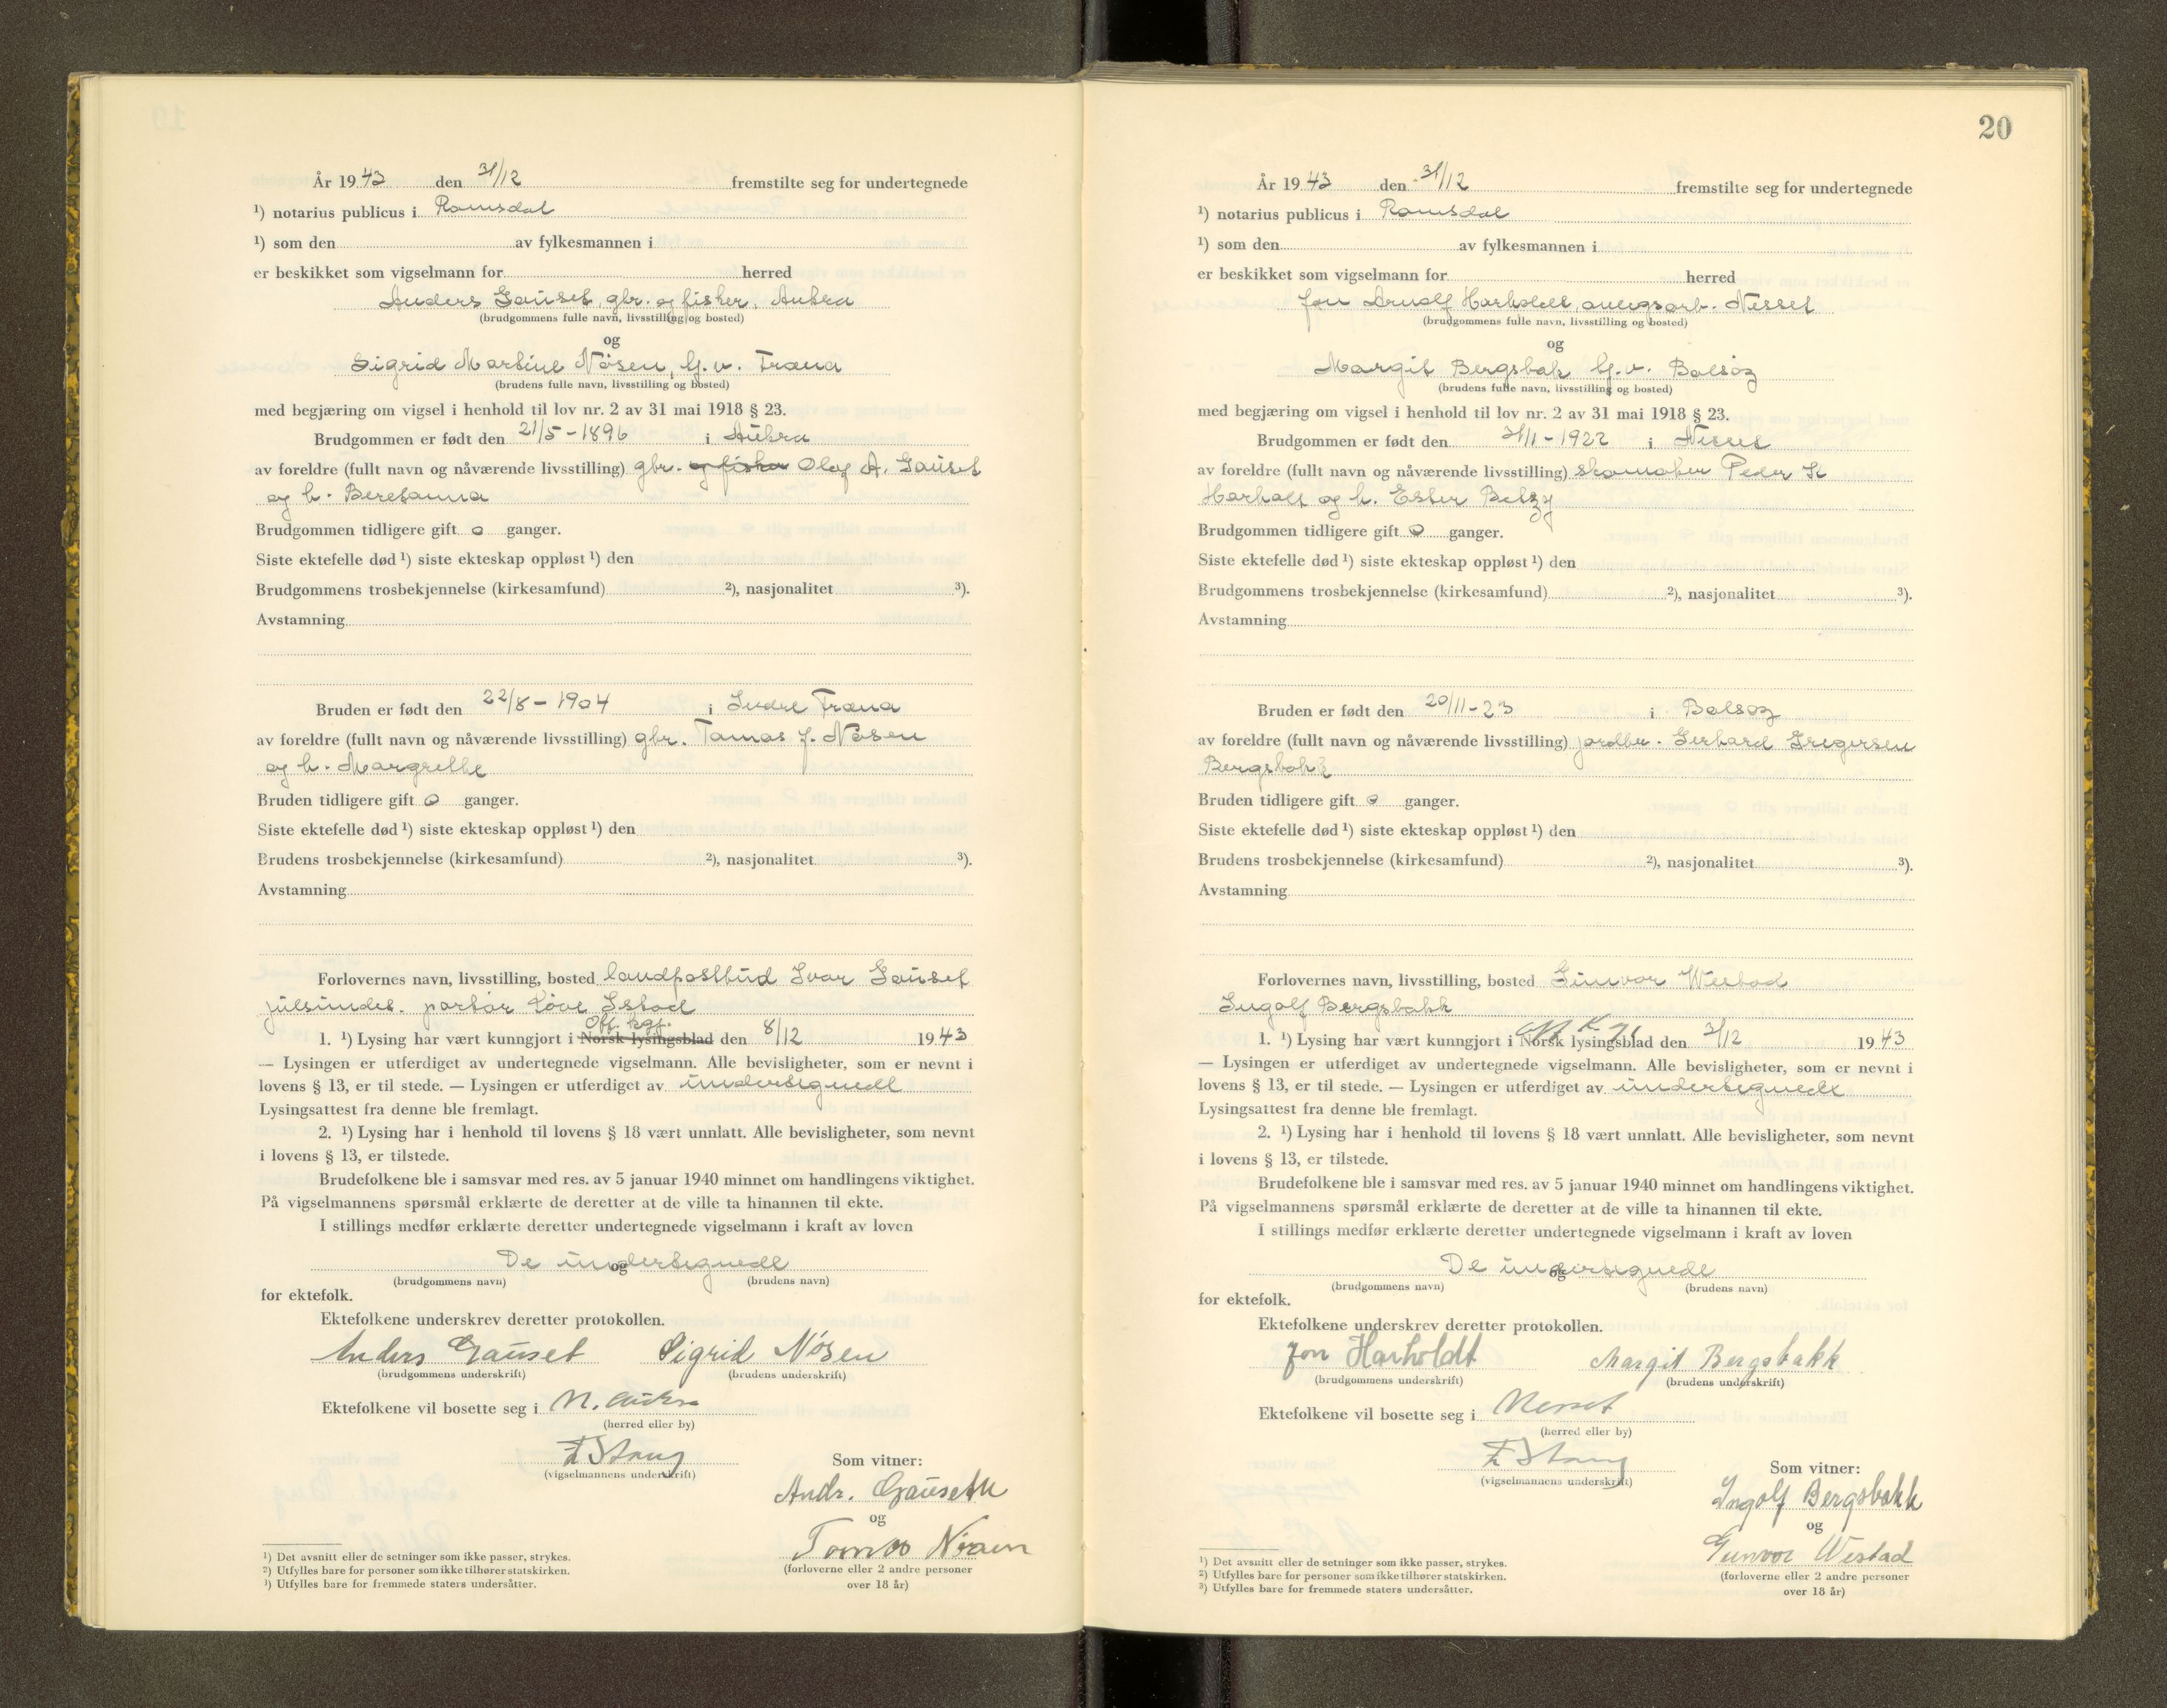 År 1943 den 31/12 fremstilte seg for undertegnede
¹) notarius publicus i Romsdal
¹) som den av fylkesmannen i
er beskikket som vigselmann for herred
Anders Gauset, gbr. og fisker, Aukra
(brudgommens fulle navn, livsstilling og bosted)
og
Sigrid Martine Nøsen, hj.v. Fræna
(brudens fulle navn, livsstilling og bosted)
med begjæring om vigsel i henhold til lov nr. 2 av 31 mai 1918 § 23.
Brudgommen er født den 21/5 - 1896 i Aukra
av foreldre (fullt navn og nåværende livsstilling) gbr. og fisker Olag A. Gauset
og h. Beretanna
Brudgommen tidligere gift 0 ganger.
Siste ektefelle død ¹) siste ekteskap oppløst ¹) den
Brudgommens trosbekjennelse (kirkesamfund) ²), nasjonalitet ³).
Avstamning
Bruden er født den 22/8 - 1904 i Indre Fræna
av foreldre (fullt navn og nåværende livsstilling) gbr. Tomas J. Nøsen
og h. Margrethe
Bruden tidligere gift 0 ganger.
Siste ektefelle død ¹) siste ekteskap oppløst ¹) den
Brudens trosbekjennelse (kirkesamfund) ²), nasjonalitet ³).
Avstamning
Forlovernes navn, livsstilling, bosted landpostbud Ivar Gauset
Julsundet.
Off. kgj.
1. ¹) Lysing har vært kunngjort i Norsk lysingsblad den 8/12 1943
— Lysingen er utferdiget av undertegnede vigselmann. Alle bevisligheter, som er nevnt i
lovens § 13, er til stede. — Lysingen er utferdiget av undertegnede
Lysingsattest fra denne ble fremlagt.
2. ¹) Lysing har i henhold til lovens § 18 vært unnlatt. Alle bevisligheter, som nevnt
i lovens § 13, er tilstede.
Brudefolkene ble i samsvar med res. av 5 januar 1940 minnet om handlingens viktighet.
På vigselmannens spørsmål erklærte de deretter at de ville ta hinannen til ekte.
I stillings medfør erklærte deretter undertegnede vigselmann i kraft av loven
De undertegnede
og
(brudgommens navn) (brudens navn)
for ektefolk.
Ektefolkene underskrev deretter protokollen.
Anders Gauset Sigrid Nøsen
(brudgommens underskrift) (brudens underskrift)
Ektefolkene vil bosette seg i N. Aukra
(herred eller by)
Stang
(vigselmannens underskrift)
Som vitner:
Andr. Gauseth
og
Tomas Nøsen
(forloverne eller 2 andre personer
over 18 år)
¹) Det avsnitt eller de setninger som ikke passer, strykes.
²) Utfylles bare for personer som ikke tilhører statskirken.
³) Utfylles bare for fremmede staters undersåtter.
20
År 1943 den 31/12 fremstilte seg for undertegnede
¹) notarius publicus i Romsdal
¹) som den av fylkesmannen i
er beskikket som vigselmann for herred
Jon Arnolf Harholdt, anlegsarb. Nesset
(brudgommens fulle navn, livsstilling og bosted)
og
Margit Bergsbak hj.v. Bolsøy
(brudens fulle navn, livsstilling og bosted)
med begjæring om vigsel i henhold til lov nr. 2 av 31 mai 1918 § 23.
Brudgommen er født den 31/1 - 1922 i Nesset
av foreldre (fullt navn og nåværende livsstilling) skomaker Peder
Harholt og h. Ester Betzy
Brudgommen tidligere gift 0 ganger.
Siste ektefelle død ¹) siste ekteskap oppløst ¹) den
Brudgommens trosbekjennelse (kirkesamfund) ²), nasjonalitet ³).
Avstamning
Bruden er født den 20/11 - 23 i Bolsøy
av foreldre (fullt navn og nåværende livsstilling) jordbr. Gerhard Gregersen
Bergsbakk
Bruden tidligere gift 0 ganger.
Siste ektefelle død ¹) siste ekteskap oppløst ¹) den
Brudens trosbekjennelse (kirkesamfund) ²), nasjonalitet ³).
Avstamning
Forlovernes navn, livsstilling, bosted Gunvor Westad
Ingolf Bergsbakk
Off. kgj.
1. ¹) Lysing har vært kunngjort i Norsk lysingsblad den 3/12 1943
— Lysingen er utferdiget av undertegnede vigselmann. Alle bevisligheter, som er nevnt i
lovens § 13, er til stede. — Lysingen er utferdiget av undertegnede
Lysingsattest fra denne ble fremlagt.
2. ¹) Lysing har i henhold til lovens § 18 vært unnlatt. Alle bevisligheter, som nevnt
i lovens § 13, er tilstede.
Brudefolkene ble i samsvar med res. av 5 januar 1940 minnet om handlingens viktighet.
På vigselmannens spørsmål erklærte de deretter at de ville ta hinannen til ekte.
I stillings medfør erklærte deretter undertegnede vigselmann i kraft av loven
De undertegnede
og
(brudgommens navn) (brudens navn)
for ektefolk.
Ektefolkene underskrev deretter protokollen.
Jon Harholdt Margit Bergsbakk
(brudgommens underskrift) (brudens underskrift)
Ektefolkene vil bosette seg i Nesset
(herred eller by)
Stang
(vigselmannens underskrift)
Som vitner:
Ingolf Bergsbakk
og
Gunvor Westad
(forloverne eller 2 andre personer
over 18 år)
¹) Det avsnitt eller de setninger som ikke passer, strykes.
²) Utfylles bare for personer som ikke tilhører statskirken.
³) Utfylles bare for fremmede staters undersåtter.